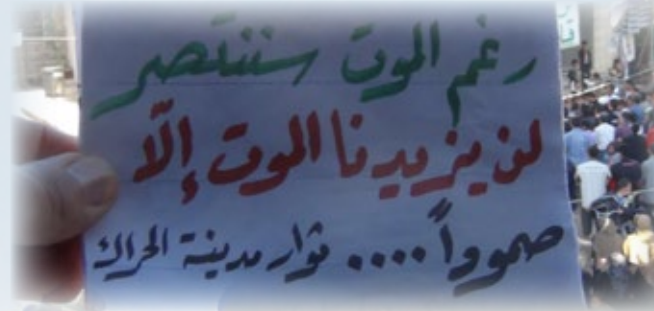 رغم الموت سننتصر
لن يزيدنا الموت إلّا
صموداً .... ثوار مدينة الحراك